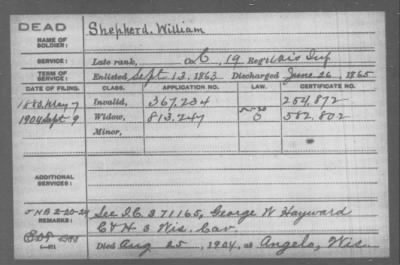 DEAD
NAME OF SOLDIER: Shepherd, William
SERVICE: Late rank, Co C, 19 Reg't Wis Inf
TERM OF SERVICE: Enlisted Sept 13, 1863 Discharged June 26, 1865
DATE OF FILING. CLASS. APPLICATION NO. LAW. CERTIFICATE NO.
1880 May 7 Invalid, 367,234 254,872
1904 Sept 9 Widow, 813,247 582,802
Minor,
ADDITIONAL SERVICES:
JHB 2-20-24 See I.C. 371165, George W Hayward
REMARKS: C & H 3 Wis. Cav.
Died Aug 25, 1904, at Angelo, Wis.